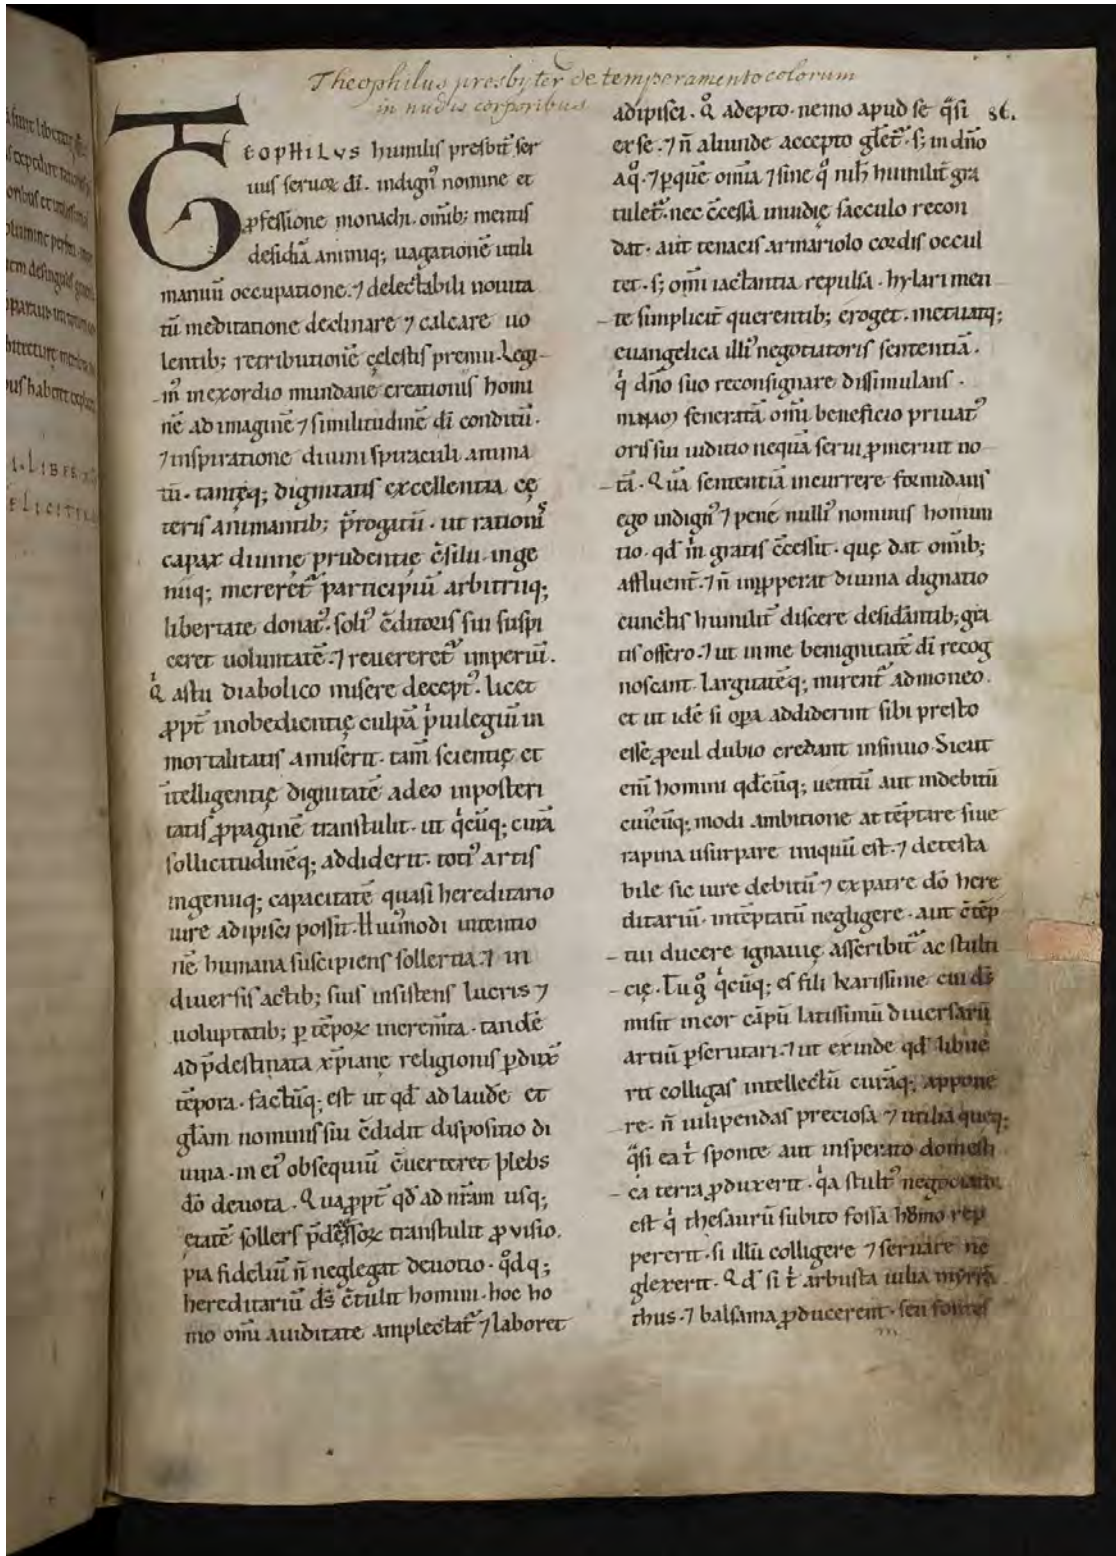 Theophilus presbyter de temperamento colorum
in nudis corporibus
TEOPHILVS humilis presbit̄ ser
uus seruoꝝ dī. indign᷒ nomine et
ꝓfessione monachi. om̄ib; mentis
desidiā animiq; uagationē utili
manuū occupatione. ⁊ delectabili nouita
tū meditatione declinare ⁊ calcare uo
lentib; retributionē cęlestis premii. Legi-
m᷒ in exordio mundanę creationis homi
nē ad imaginē ⁊ similitudinē dī conditū.
⁊ inspiratione diuini spiraculi anima
tū. tantęq; dignitatis excellentia cę
teris animantib; p̄rogatiū. ut rationis
capax diuinę prudentię c̄silii inge
niiq; mereret᷑ participiū arbitriiq;
libertate donat᷒. soli᷒ c̄ditoris sui suspi
ceret uoluntatē. ⁊ reuereret᷑ imperiū.
Qͥ astu diabolico misere decept᷒. licet
ꝓpt̄ inobedientię culpā pͥuilegiū in
mortalitatis amiserit. tam̄ scientię et
ītelligentię dignitatē adeo in posteri
tatis ꝓpaginē transtulit. ut qͥcūq; curā
sollicitudinēq; addiderit. toti᷒ artis
ingeniiq; capacitatē quasi hereditario
iure adipisci possit. Hui᷒modi intentio
nē humana suscipiens sollertia. ⁊ in
diuersis actib; suis insistens lucris ⁊
uoluptatib; ꝑ tēpoꝝ increm̄ta. tandē
ad p̄destinata xp̄ianę religionis ꝑdux̄
tēpora. factūq; est ut qd̄ ad laudē et
gl̄am nominis sui c̄didit dispositio di
uina. in ei᷒ obsequiū c̄uerteret plebs
dō deuota. Quaꝓpt̄ qd̄ ad nr̄am usq;
etatē sollers p̄dessoꝝ transtulit ꝓuisio.
pia fideliū n̄ neglegat deuotio. qͦdq;
hereditariū ds̄ c̄tulit homini. hoc ho
mo om̄i auiditate amplectat᷑ ⁊ laboret
adipisci. Qͦ adepto. nemo apud se qͣsi 86.
ex se. ⁊ n̄ aliunde accepto gl̄et᷑. s; in dn̄o
a qͦ. ⁊ ꝑ quē om̄ia ⁊ sine qͦ nih̄ humilit̄ gra
tulet᷑. nec c̄cessa inuidię sacculo recon
dat. aut tenacis armariolo cordis occul
tet. s; om̄i iactantia repulsa. hylari men
te simplicit̄ querentib; eroget. metuatq;
euangelica illi᷒ negotiatoris sententiā.
qͥ dn̄o suo reconsignare dissimulans.
feneratā om̄i beneficio priuat᷒
oris sui iuditio nequā serui ꝓmeruit no
tā. Quā sententiā incurrere formidans
ego indign᷒ ⁊ pene nulli᷒ nominis homun
tio. qd̄ m̄ gratis c̄cessit. quę dat om̄ib;
affluent̄. ⁊ n̄ inꝓperat diuina dignatio
cunctis humilit̄ discere desid̄antib; gra
tis offero. ⁊ ut in me benignitatē dī recog
noscant. largitatēq; mirent᷑ admoneo.
et ut idē si opa addiderint sibi presto
essē ꝓcul dubio credant insinuo. Sicut
eni homini qd̄cūq; uentiū aut indebitū
cui᷒cūq; modi ambitione attēptare siue
rapina usurpare iniquū est. ⁊ detesta
bile sic iure debitū ⁊ ex patre dō here
ditariū. intēptatū negligere. aut c̄tēp
tui ducere ignauię asscribit᷑ ac stulti
cię. Tu gͦ qͥcūq; es fili karissime cui ds̄
misit in cor cāpū latissimū diuersarū
artiū ꝑscrutari. ⁊ ut exinde qd̄ libue
rit colligas intellectū curāq; appone
re. n̄ uilipendas preciosa ⁊ utilia queq;
qͣsi ea t̄ sponte aut insperato domesti
ca terra ꝓduxerit. qͣa stult᷒ negociator
est qͥ thesaurū subito fossa homo rep
pererit. si illū colligere ⁊ seruare ne
glexerit. Qd̄ si t̄ arbusta uilia myrrā
thus. ⁊ balsama ꝓducerent. seu fontes